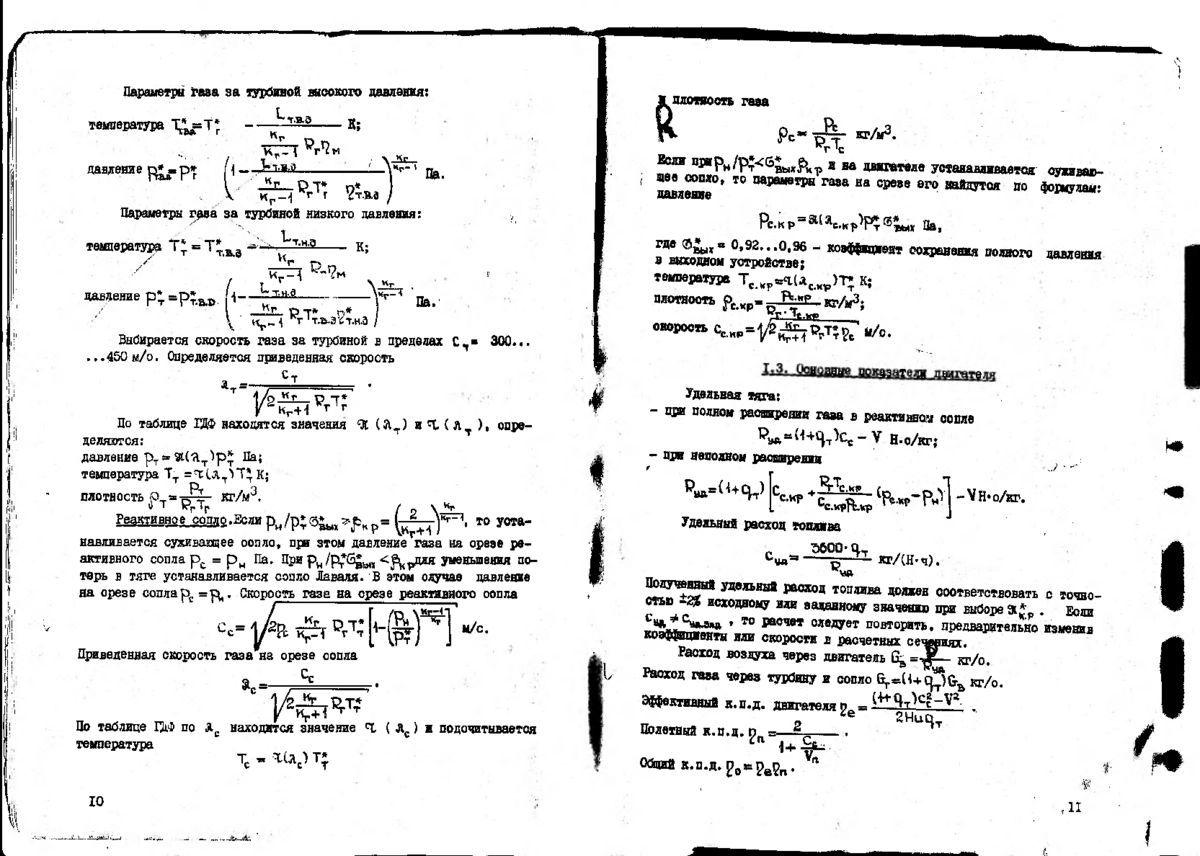 Параметры газа за турбиной высокого давления:
температура T*т.в.д = T*г − Lт.в.д / (кг/(кг−1) Rг ηм) К;
давление p*т.в.д = p*г (1 − Lт.в.д / (кг/(кг−1) Rг T*г η*т.в.д))^(кг/(кг−1)) Па.
Параметры газа за турбиной низкого давления:
температура T*т = T*т.в.д − Lт.н.д / (кг/(кг−1) Rг ηм) К;
давление p*т = p*т.в.д (1 − Lт.н.д / (кг/(кг−1) Rг T*т.в.д η*т.н.д))^(кг/(кг−1)) Па.
Выбирается скорость газа за турбиной в пределах Cт = 300...
...450 м/с. Определяется приведенная скорость
λт = Cт / √(2 кг/(кг+1) Rг T*т) .
По таблице ГДФ находятся значения π(λт) и τ(λт), опре-
деляются:
давление pт = π(λт) p*т Па;
температура Tт = τ(λт) T*т К;
плотность ρт = pт / (Rг Tт) кг/м³.
Реактивное сопло. Если pн/p*т σ*вых ≥ βкр = (2/(кг+1))^(кг/(кг−1)), то уста-
навливается суживающее сопло, при этом давление газа на срезе ре-
активного сопла pс = pн Па. При pн/p*т σ*вых < βкр для уменьшения по-
терь в тяге устанавливается сопло Лаваля. В этом случае давление
на срезе сопла pс = pн. Скорость газа на срезе реактивного сопла
Cс = √(2ηс кг/(кг−1) Rг T*т [1 − (pн/p*т)^((кг−1)/кг)]) м/с.
Приведенная скорость газа на срезе сопла
λс = Cс / √(2 кг/(кг+1) Rг T*т) .
По таблице ГДФ по λс находится значение τ(λс) и подсчитывается
температура
Tс = τ(λс) T*т
10
и плотность газа
R
ρс = pс / (Rг Tс) кг/м³.
Если при pн/p*т < σ*вых βкр и на двигателе устанавливается суживаю-
щее сопло, то параметры газа на срезе его найдутся по формулам:
давление
pс.кр = π(λс.кр) p*т σ*вых Па,
где σ*вых = 0,92...0,96 - коэффициент сохранения полного давления
в выходном устройстве;
температура Tс.кр = τ(λс.кр) T*т К;
плотность ρс.кр = pс.кр / (Rг · Tс.кр) кг/м³;
скорость Cс.кр = √(2 кг/(кг+1) Rг T*т ηс) м/с.
1.3. Основные показатели двигателя
Удельная тяга:
- при полном расширении газа в реактивном сопле
Rуд = (1+qт)Cс − V Н·с/кг;
- при неполном расширении
Rуд = (1+qт) [Cс.кр + Rг Tс.кр / (Cс.кр pс.кр) (pс.кр − pн)] − V Н·с/кг.
Удельный расход топлива
Cуд = 3600·qт / Rуд кг/(Н·ч).
Полученный удельный расход топлива должен соответствовать с точно-
стью ±2% исходному или заданному значению при выборе π*кр. Если
Cуд ≠ Cуд.зад, то расчет следует повторить, предварительно изменив
коэффициенты или скорости в расчетных сечениях.
Расход воздуха через двигатель Gв = R / Rуд кг/с.
Расход газа через турбину и сопло Gт = (1+qт)Gв кг/с.
Эффективный к.п.д. двигателя ηe = ((1+qт)Cс² − V²) / (2Hu qт) .
Полетный к.п.д. ηп = 2 / (1 + Cс/Vп) .
Общий к.п.д. ηо = ηe ηп .
11